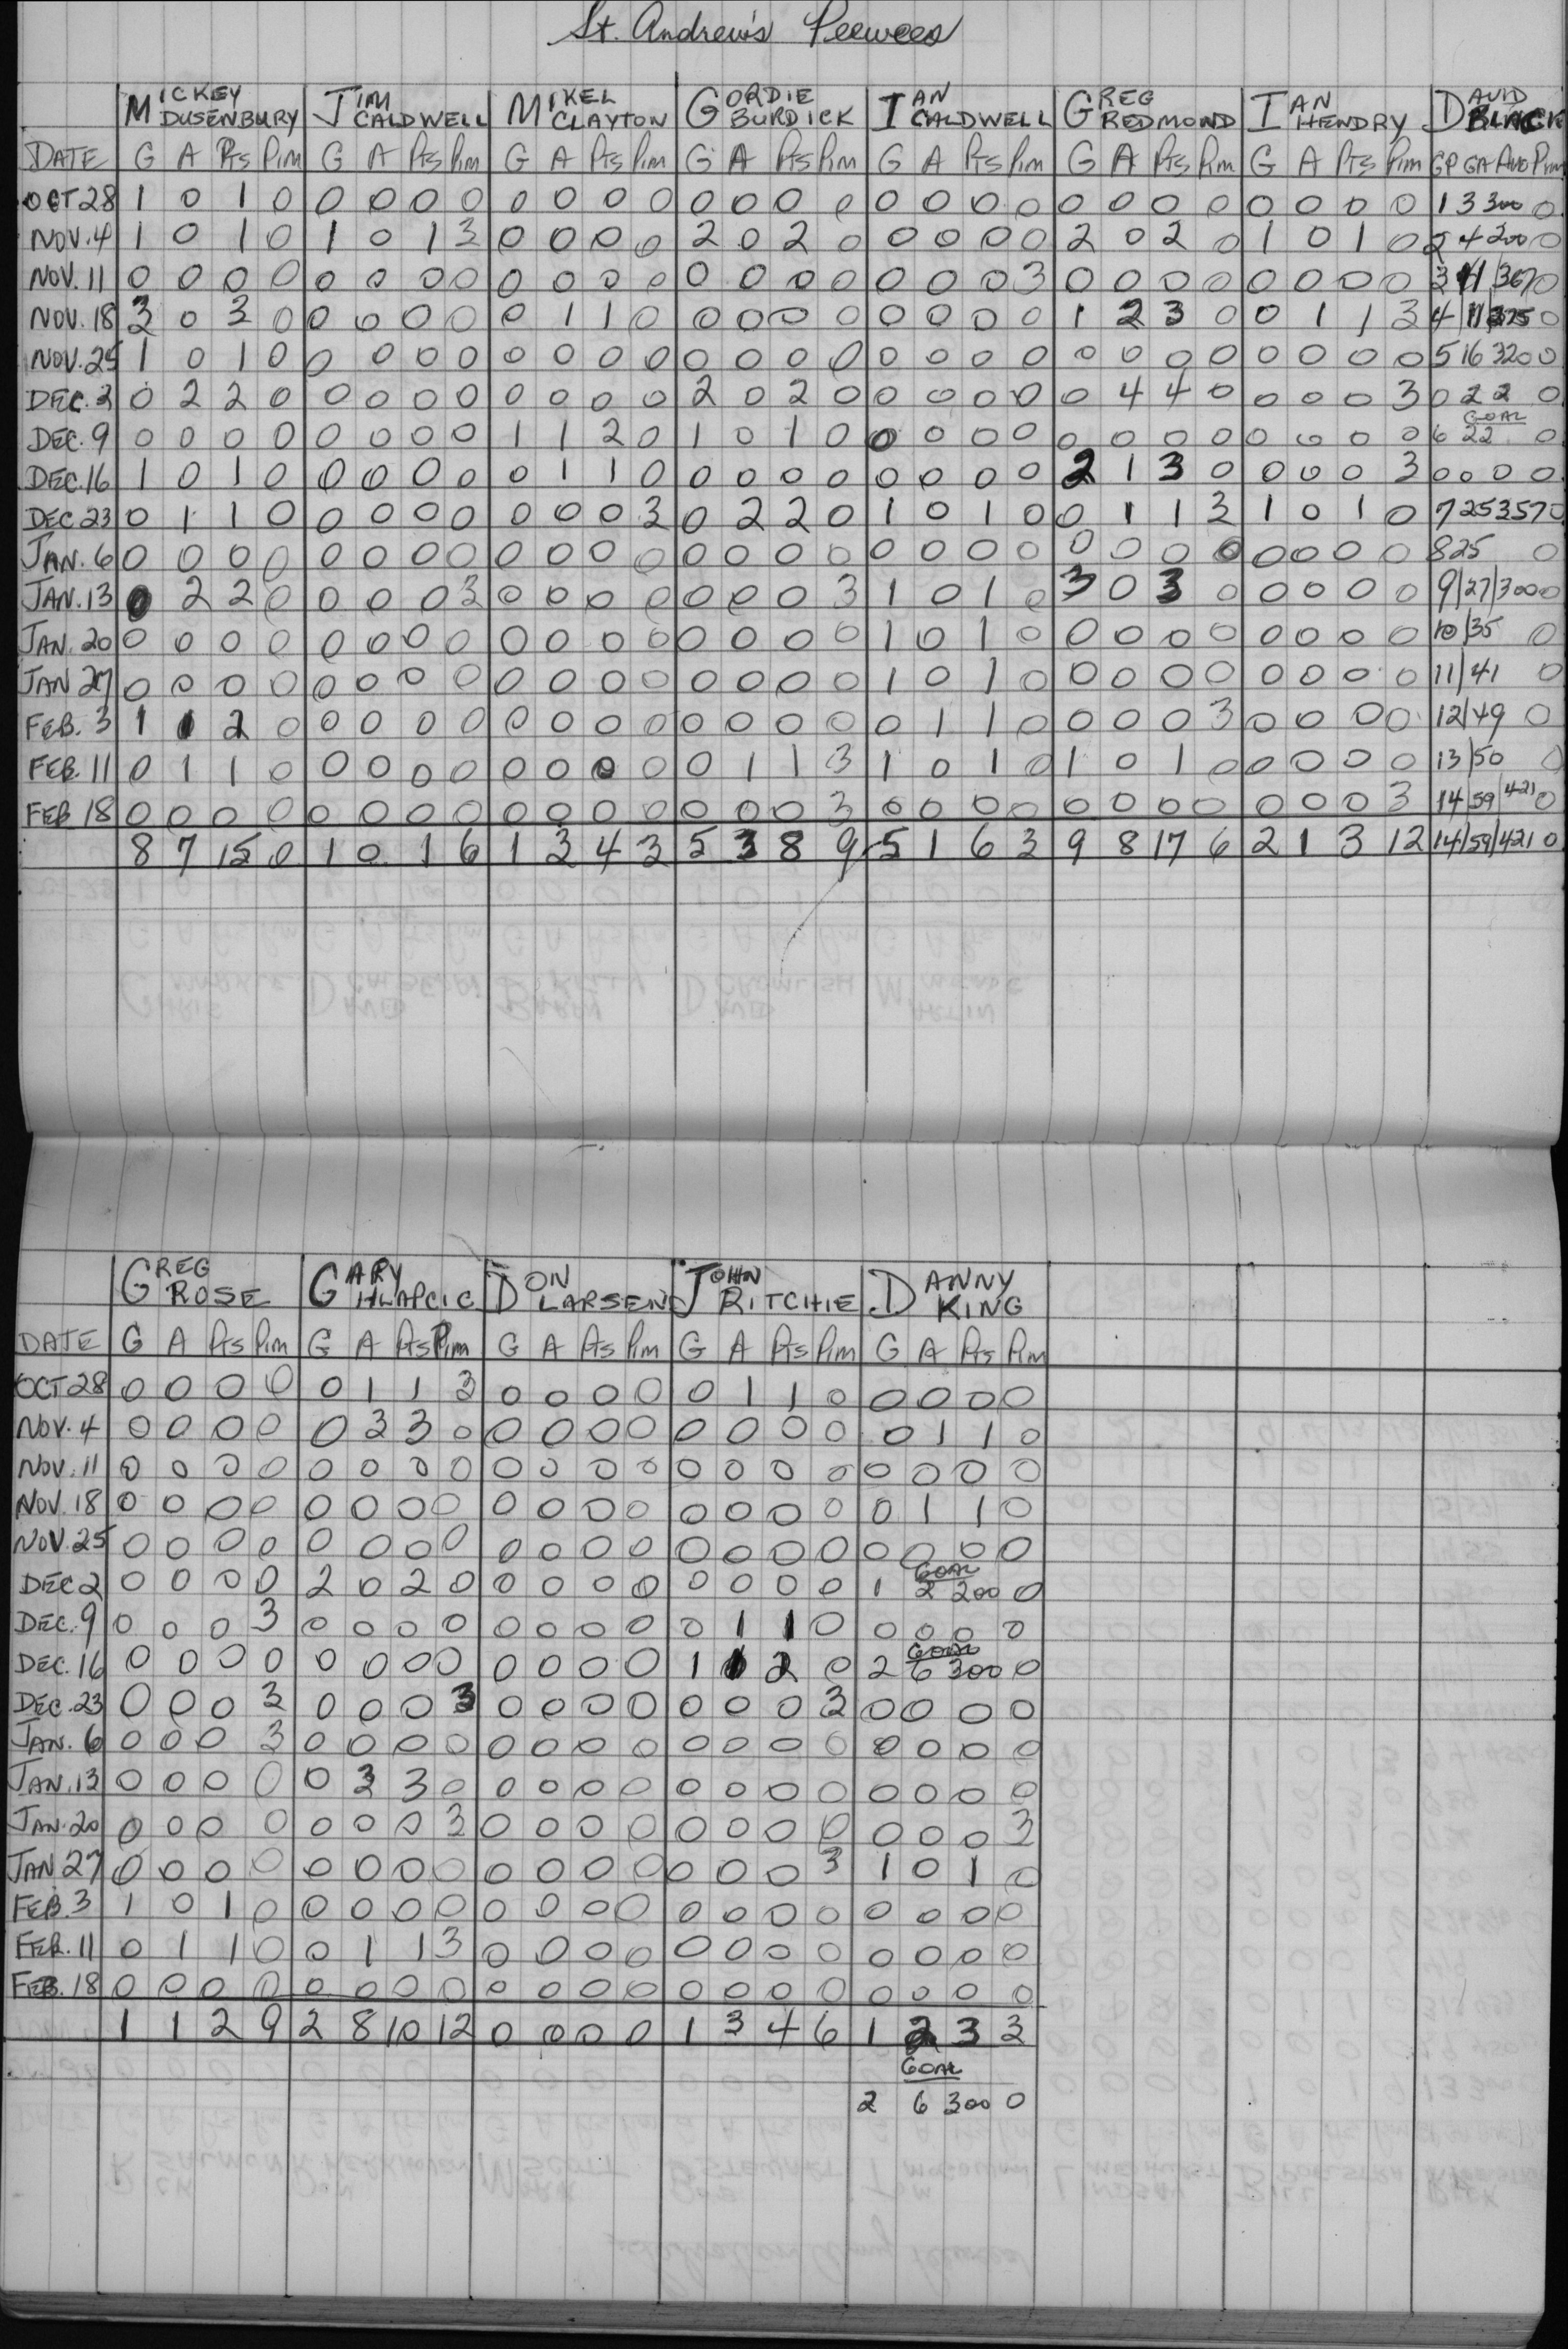 St. Andrew's Peewees
MICKEY DUSENBURY JIM CALDWELL MIKEL CLAYTON GORDIE BURDICK IAN CALDWELL GREG REDMOND IAN HENDRY DAVID BLACK
DATE G A Pts Pim G A Pts Pim G A Pts Pim G A Pts Pim G A Pts Pim G A Pts Pim G A Pts Pim GP GA AVG Pim
OCT 28 1 0 1 0 0 0 0 0 0 0 0 0 0 0 0 0 0 0 0 0 0 0 0 0 0 0 0 0 1 3 300 0
NOV. 4 1 0 1 0 1 0 1 3 0 0 0 0 2 0 2 0 0 0 0 0 2 0 2 0 1 0 1 0 2 4 200 0
NOV. 11 0 0 0 0 0 0 0 0 0 0 0 0 0 0 0 0 0 0 0 3 0 0 0 0 0 0 0 0 3 11 367 0
NOV. 18 3 0 3 0 0 0 0 0 0 1 1 0 0 0 0 0 0 0 0 0 1 2 3 0 0 1 1 3 4 11 275 0
NOV. 25 1 0 1 0 0 0 0 0 0 0 0 0 0 0 0 0 0 0 0 0 0 0 0 0 0 0 0 0 5 16 320 0
DEC. 2 0 2 2 0 0 0 0 0 0 0 0 0 2 0 2 0 0 0 0 0 0 4 4 0 0 0 0 3 0 2 2 0
GOAL
DEC. 9 0 0 0 0 0 0 0 0 1 1 2 0 1 0 1 0 0 0 0 0 0 0 0 0 0 0 0 0 6 22 0
DEC. 16 1 0 1 0 0 0 0 0 0 1 1 0 0 0 0 0 0 0 0 0 2 1 3 0 0 0 0 3 0 0 0 0
DEC 23 0 1 1 0 0 0 0 0 0 0 0 3 0 2 2 0 1 0 1 0 0 1 1 3 1 0 1 0 7 25 357 0
JAN. 6 0 0 0 0 0 0 0 0 0 0 0 0 0 0 0 0 0 0 0 0 0 0 0 0 0 0 0 0 8 25 0
JAN. 13 0 2 2 0 0 0 0 3 0 0 0 0 0 0 0 3 1 0 1 0 3 0 3 0 0 0 0 0 9/27/300 0
JAN. 20 0 0 0 0 0 0 0 0 0 0 0 0 0 0 0 0 1 0 1 0 0 0 0 0 0 0 0 0 10/35 0
JAN 27 0 0 0 0 0 0 0 0 0 0 0 0 0 0 0 0 1 0 1 0 0 0 0 0 0 0 0 0 11/41 0
FEB. 3 1 1 2 0 0 0 0 0 0 0 0 0 0 0 0 0 0 1 1 0 0 0 0 3 0 0 0 0 12/49 0
FEB. 11 0 1 1 0 0 0 0 0 0 0 0 0 0 1 1 3 1 0 1 0 1 0 1 0 0 0 0 0 13/50 0
FEB 18 0 0 0 0 0 0 0 0 0 0 0 0 0 0 0 3 0 0 0 0 0 0 0 0 0 0 0 3 14/59/421 0
8 7 15 0 1 0 1 6 1 3 4 3 5 3 8 9 5 1 6 3 9 8 17 6 2 1 3 12 14/59/421 0
GREG ROSE GARY HLAPCIC DON LARSEN JOHN RITCHIE DANNY KING
DATE G A Pts Pim G A Pts Pim G A Pts Pim G A Pts Pim G A Pts Pim
OCT 28 0 0 0 0 0 1 1 3 0 0 0 0 0 1 1 0 0 0 0 0
NOV. 4 0 0 0 0 0 3 3 0 0 0 0 0 0 0 0 0 0 1 1 0
NOV. 11 0 0 0 0 0 0 0 0 0 0 0 0 0 0 0 0 0 0 0 0
NOV. 18 0 0 0 0 0 0 0 0 0 0 0 0 0 0 0 0 0 1 1 0
NOV. 25 0 0 0 0 0 0 0 0 0 0 0 0 0 0 0 0 0 0 0 0
GOAL
DEC 2 0 0 0 0 2 0 2 0 0 0 0 0 0 0 0 0 1 2 200 0
DEC. 9 0 0 0 3 0 0 0 0 0 0 0 0 0 1 1 0 0 0 0 0
GOAL
DEC. 16 0 0 0 0 0 0 0 0 0 0 0 0 1 1 2 0 2 6 300 0
DEC. 23 0 0 0 3 0 0 0 3 0 0 0 0 0 0 0 3 0 0 0 0
JAN. 6 0 0 0 3 0 0 0 0 0 0 0 0 0 0 0 0 0 0 0 0
JAN. 13 0 0 0 0 0 3 3 0 0 0 0 0 0 0 0 0 0 0 0 0
JAN. 20 0 0 0 0 0 0 0 3 0 0 0 0 0 0 0 0 0 0 0 3
JAN 27 0 0 0 0 0 0 0 0 0 0 0 0 0 0 0 3 1 0 1 0
FEB. 3 1 0 1 0 0 0 0 0 0 0 0 0 0 0 0 0 0 0 0 0
FEB. 11 0 1 1 0 0 1 1 3 0 0 0 0 0 0 0 0 0 0 0 0
FEB. 18 0 0 0 0 0 0 0 0 0 0 0 0 0 0 0 0 0 0 0 0
1 1 2 9 2 8 10 12 0 0 0 0 1 3 4 6 1 2 3 3
GOAL
2 6 300 0